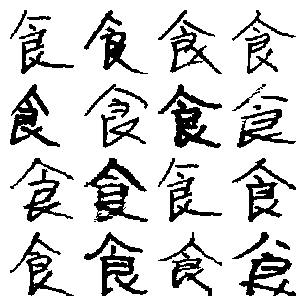 食食食食
食食食食
食食食食
食食食食